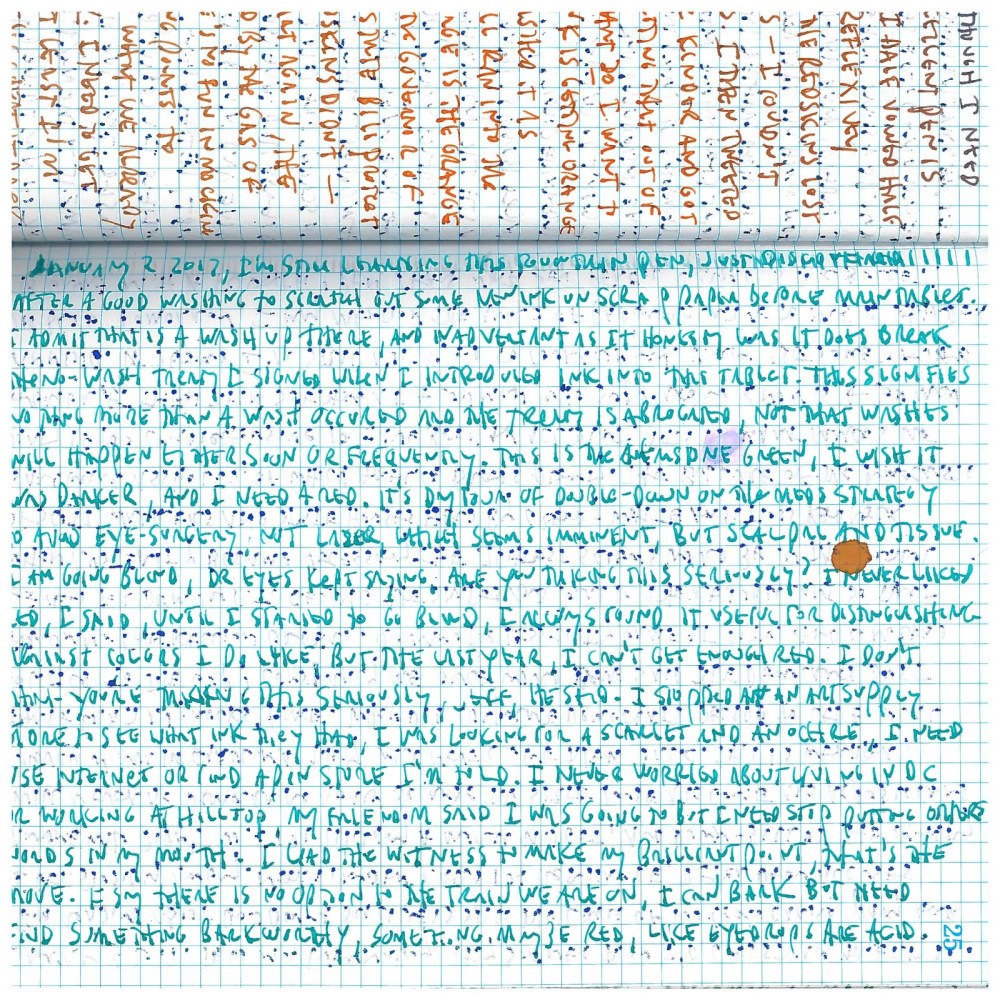 JANUARY 2 2017, I'M STILL LEARNING THIS FOUNTAIN PEN, JUST
AFTER A GOOD WASHING TO SCRATCH OUT SOME NEW INK ON SCRAP PAPER BEFORE MAIN TABLET.
I ADMIT THAT IS A WASH UP THERE, AND INADVERTANT AS IT HONESTLY WAS IT DOES BREAK
THE NO-WASH TREATY I SIGNED WHEN I INTRODUCED INK INTO THIS TABLET. THIS SIGNIFIES
NOTHING MORE THAN A WASH OCCURED AND THE TREATY IS ABROGATED, NOT THAT WASHES
WILL HAPPEN EITHER SOON OR FREQUENTLY. THIS IS THE GREEN, I WISH IT
WAS DARKER, AND I NEED A RED. IT'S MY FOUR OF DOUBLE-DOWN ON THE MEDS STRATEGY
TO AVOID EYE-SURGERY, NOT LASER, WHICH SEEMS IMMINENT, BUT SCALPEL AND TISSUE.
I AM GOING BLIND, DR EYES KEPT SAYING. ARE YOU TAKING THIS SERIOUSLY? I NEVER LIKED
RED, I SAID, UNTIL I STARTED TO GO BLIND, I ALWAYS FOUND IT USEFUL FOR DISTINGUISHING
AGAINST COLORS I DO LIKE, BUT THE LAST YEAR, I CAN'T GET ENOUGH RED. I DON'T
THINK YOU'RE TAKING THIS SERIOUSLY, HE SAID. I STOPPED AT AN ART SUPPLY
STORE TO SEE WHAT INK THEY HAD, I WAS LOOKING FOR A SCARLET AND AN OCHRE, I NEED
USE INTERNET OR FIND A PEN STORE I'M TOLD. I NEVER WORRIED ABOUT LIVING IN DC
OR WORKING AT HILLTOP, MY FRIEND M SAID I WAS GOING TO BUT I NEED STOP PUTTING OTHERS
WORDS IN MY MOUTH. I LEAD THE WITNESS TO MAKE MY BRILLIANT POINT, THAT'S THE
MOVE. I SAY THERE IS NO OPTION TO THE TRAIN WE ARE ON, I CAN BARK BUT NEED
FIND SOMETHING BARKWORTHY, SOMETHING MAYBE RED, LIKE EYEDROPS ARE ACID.
25
THOUGH I NEED
PEN IS
I HAVE VOWED HALF
REFLEXIVELY
RED SKINS LOST
S - I COULDN'T
I THEN TWEETED
KINDER AND GOT
THAT OUT OF
DO I WANT
K IS GERTM ORANGE
IT IS
RAN INTO THE
GE IS THE ORANGE
GOVERNOR OF
STATE BILL
SKINS DIDN'T —
AGAIN, THE
BY THE GAS OF
IS NO FUN IN MOCKING
POINTS TO
WHAT WE ALREADY
I NEED TO GET
LEAST I'M